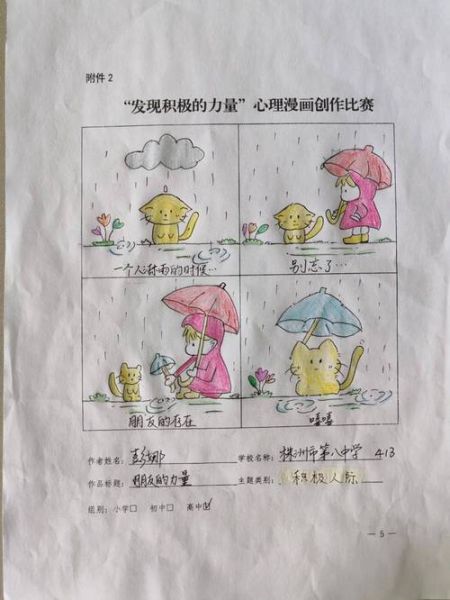 附件 2
“发现积极的力量”心理漫画创作比赛
一个人淋雨的时候…
别忘了…
朋友的存在
嘻嘻
作者姓名：彭娜 学校名称：株洲市第八中学 413
作品标题：朋友的力量 主题类别：积极人际
组别：小学□ 初中□ 高中☑
— 5 —